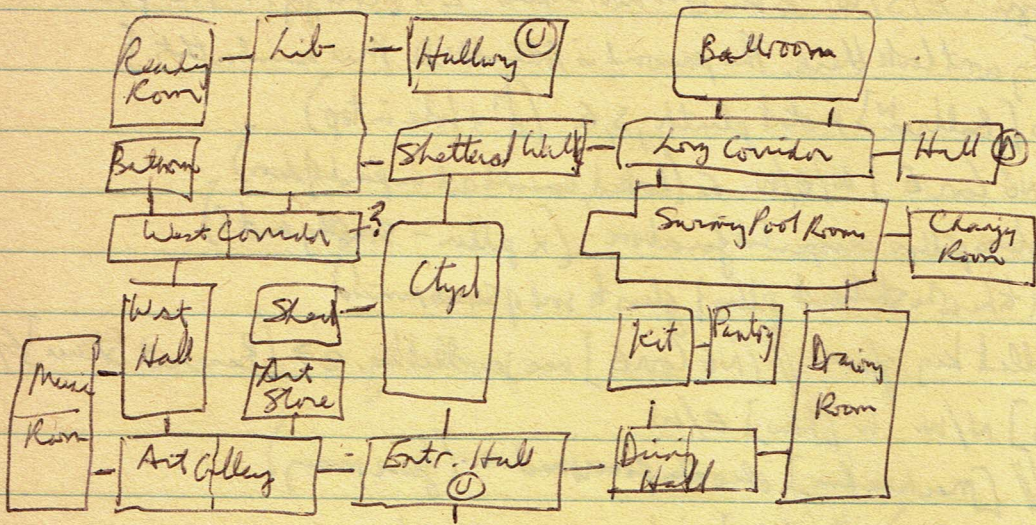 Reading
Room
Lib
Hallway U
Ballroom
Bathrm
Sheltered Walk
Long Corridor
Hall
West Corridor -?
Swimming Pool Room
Changing
Room
West
Hall
Shed
Ctyd
Kit
Pantry
Drawing
Room
Music
Room
Art
Store
Art Gallery
Entr. Hall
U
Dining
Hall